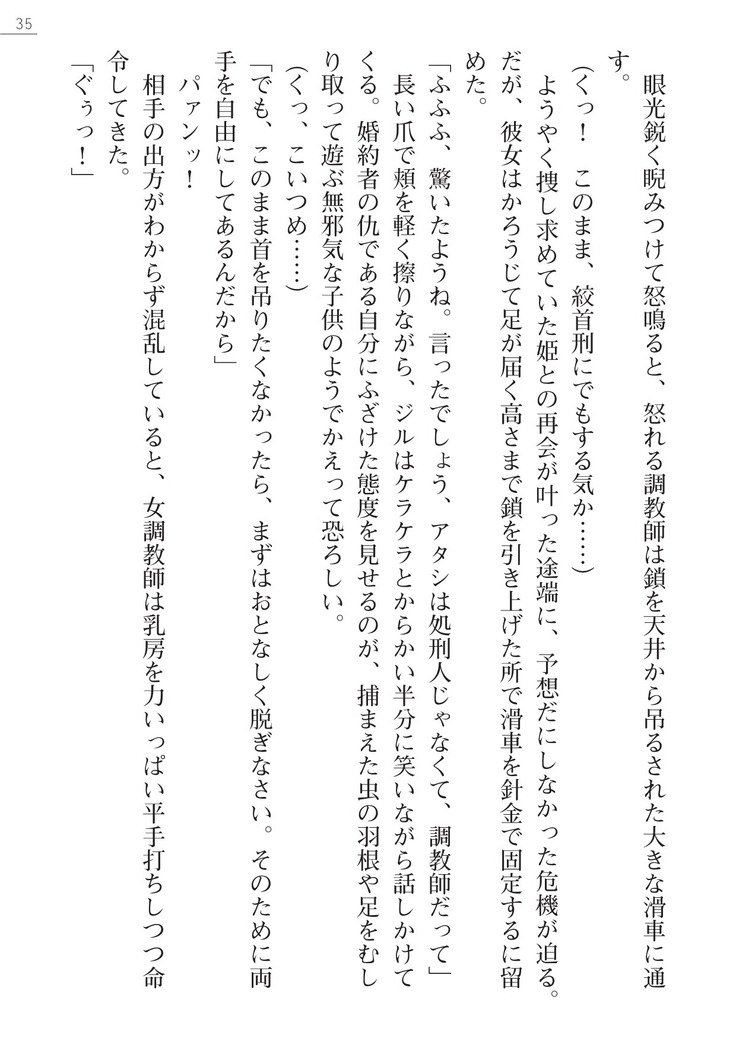 35
眼光鋭く睨みつけて怒鳴ると、怒れる調教師は鎖を天井から吊るされた大きな滑車に通
す。
(くっ！　このまま、絞首刑にでもする気か……)
ようやく捜し求めていた姫との再会が叶った途端に、予想だにしなかった危機が迫る。
だが、彼女はかろうじて足が届く高さまで鎖を引き上げた所で滑車を針金で固定するに留
めた。
「ふふふ、驚いたようね。言ったでしょう、アタシは処刑人じゃなくて、調教師だって」
長い爪で頬を軽く擦りながら、ジルはケラケラとからかい半分に笑いながら話しかけて
くる。婚約者の仇である自分にふざけた態度を見せるのが、捕まえた虫の羽根や足をむし
り取って遊ぶ無邪気な子供のようでかえって恐ろしい。
(くっ、こいつめ……)
「でも、このまま首を吊りたくなかったら、まずはおとなしく脱ぎなさい。そのために両
手を自由にしてあるんだから」
パァンッ！
相手の出方がわからず混乱していると、女調教師は乳房を力いっぱい平手打ちしつつ命
令してきた。
「ぐぅっ！」